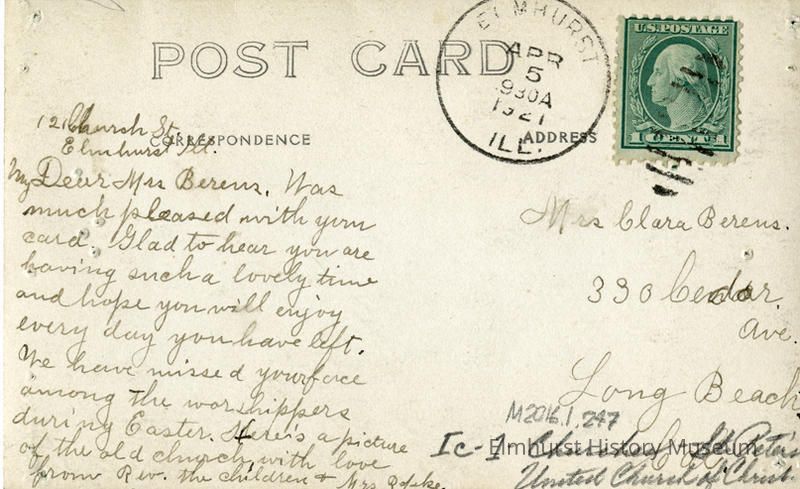 POST CARD
ELMHURST
APR
5
930A
1921
ILL.
U.S. POSTAGE
1 CENT 1
CORRESPONDENCE
ADDRESS
121 Church St.
Elmhurst Ill.
My Dear Mrs Berens. Was
much pleased with your
card. Glad to hear you are
having such a lovely time
and hope you will enjoy
every day you have left.
We have missed your face
among the worshippers
during Easter. Here's a picture
of the old church, with love
from Rev. the children & Mrs
Mrs Clara Berens.
330 Cedar
Ave.
Long Beach
M2016.1.247
Ic-1
St. Peter's
United Church of Christ.
Elmhurst History Museum